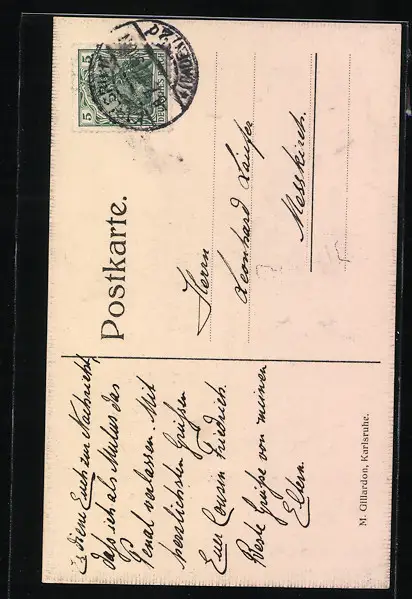 Postkarte.
Herrn
Leonhard Läufer
Messkirch.
Diene Euch zur Nachricht,
daß ich als Mulus das
Penal verlassen. Mit
herzlichsten Grüßen
Euer Cousin Friedrich.
Beste Grüße von meinen
Eltern.
M. Gillardon, Karlsruhe.
5
5